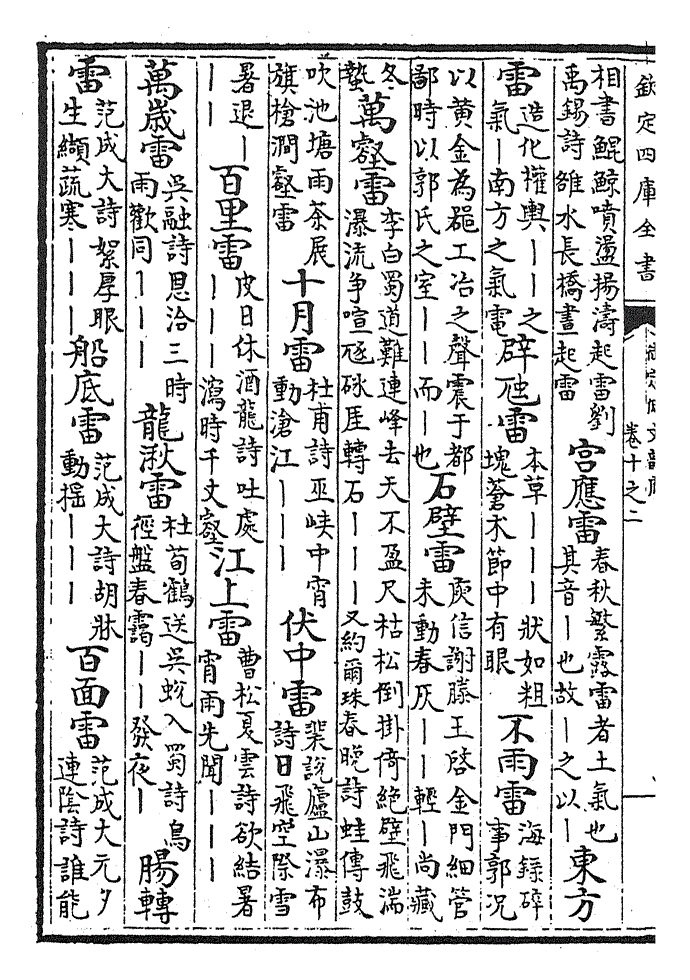 欽定四庫全書
卷十之二
相書鯤鯨噴盪揚濤起雷劉
禹錫詩雒水長橋晝起雷
宮應雷
春秋繁露雷者土氣也
其音丨也故丨之以丨
東方
雷
造化權輿丨丨之
氣丨南方之氣電
辟虺雷
本草丨丨丨狀如粗
塊蒼朮節中有眼
不雨雷
海錄碎
事郭況
以黄金為噐工冶之聲震于都
鄙時以郭氏之室丨丨而丨也
石壁雷
庾信謝滕王啓金門細管
未動春灰丨丨輕丨尚藏
冬
蟄
萬壑雷
李白蜀道難連峰去天不盈尺枯松倒掛倚絶壁飛湍
瀑流争喧豗砯厓轉石丨丨丨又約爾珠春晚詩蛙傳鼓
吹池塘雨茶展
旗槍澗壑雷
十月雷
杜甫詩巫峡中宵
動滄江丨丨丨
伏中雷
裴說廬山瀑布
詩日飛空際雪
暑退丨
丨丨
百里雷
皮日休酒龍詩吐處
丨丨丨瀉時千丈壑
江上雷
曹松夏雲詩欲結暑
宵雨先聞丨丨丨
萬歲雷
吳融詩恩洽三時
雨歡同丨丨丨
龍湫雷
杜荀鶴送吳蛻入蜀詩鳥
徑盤春靄丨丨發夜丨
腸轉
雷
范成大詩絮厚眼
生纈蔬寒丨丨丨
船底雷
范成大詩胡牀
動揺丨丨丨
百面雷
范成大元夕
連陰詩誰能